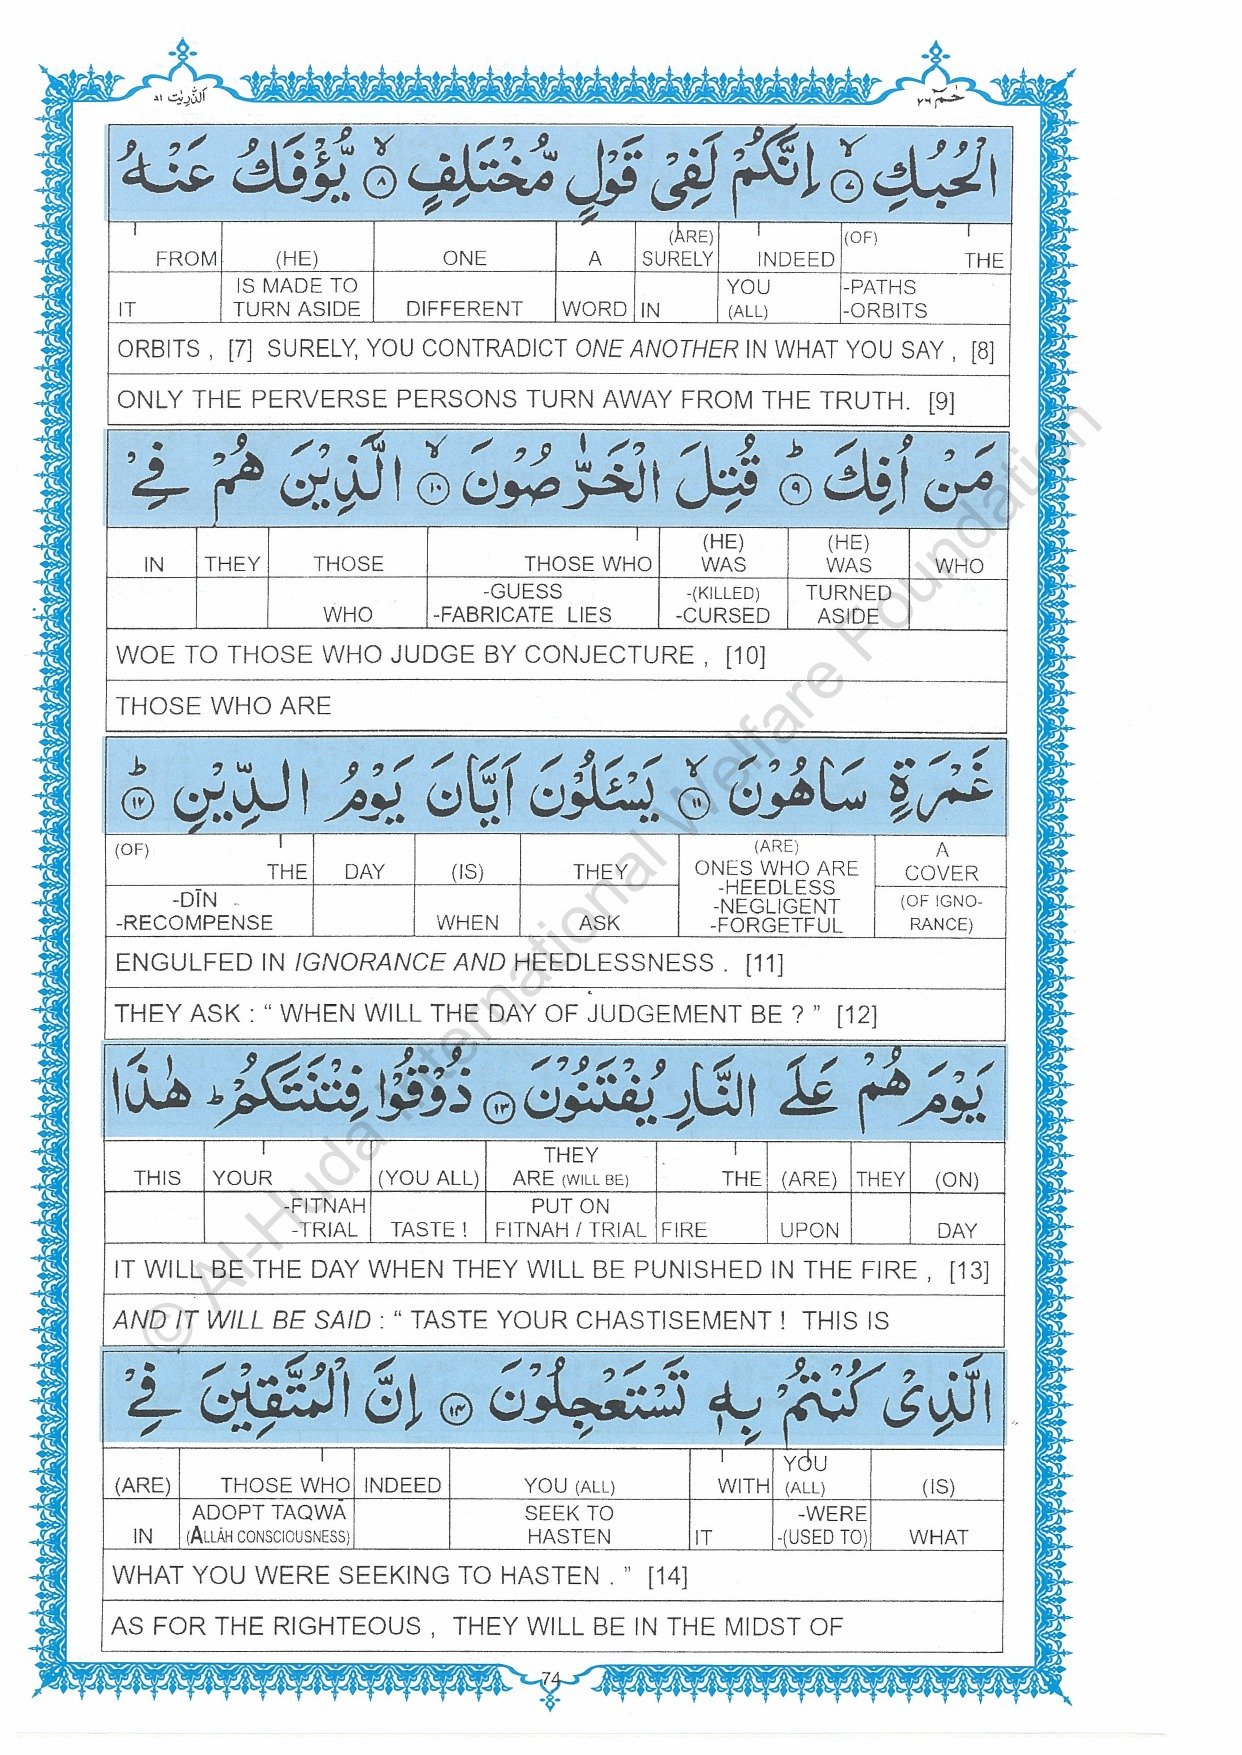 الذّٰريٰت ٥١
حٰمٓ ٢٦
الْحُبُكِ ۙ‏﴿۷﴾ اِنَّكُمْ لَفِیْ قَوْلٍ مُّخْتَلِفٍ ۙ‏﴿۸﴾ یُّؤْفَكُ عَنْهُ
FROM (HE) ONE A (ARE) SURELY INDEED (OF) THE
IT IS MADE TO TURN ASIDE DIFFERENT WORD IN YOU (ALL) -PATHS -ORBITS
ORBITS , [7] SURELY, YOU CONTRADICT ONE ANOTHER IN WHAT YOU SAY , [8]
ONLY THE PERVERSE PERSONS TURN AWAY FROM THE TRUTH. [9]
مَنْ اُفِكَ ؕ‏﴿۹﴾ قُتِلَ الْخَرّٰصُوْنَ ۙ‏﴿۱۰﴾ الَّذِیْنَ هُمْ فِیْ
IN THEY THOSE THOSE WHO (HE) WAS (HE) WAS WHO
WHO -GUESS -FABRICATE LIES -(KILLED) -CURSED TURNED ASIDE
WOE TO THOSE WHO JUDGE BY CONJECTURE , [10]
THOSE WHO ARE
غَمْرَةٍ سَاهُوْنَ ۙ‏﴿۱۱﴾ یَسْـَٔلُوْنَ اَیَّانَ یَوْمُ الدِّیْنِ ؕ‏﴿۱۲﴾
(OF) THE DAY (IS) THEY (ARE) ONES WHO ARE -HEEDLESS -NEGLIGENT -FORGETFUL A COVER
-DĪN -RECOMPENSE WHEN ASK (OF IGNO- RANCE)
ENGULFED IN IGNORANCE AND HEEDLESSNESS . [11]
THEY ASK : “ WHEN WILL THE DAY OF JUDGEMENT BE ? ” [12]
یَوْمَ هُمْ عَلَی النَّارِ یُفْتَنُوْنَ ﴿۱۳﴾ ذُوْقُوْا فِتْنَتَكُمْ ؕ هٰذَا
THIS YOUR (YOU ALL) THEY ARE (WILL BE) THE (ARE) THEY (ON)
-FITNAH -TRIAL TASTE ! PUT ON FITNAH / TRIAL FIRE UPON DAY
IT WILL BE THE DAY WHEN THEY WILL BE PUNISHED IN THE FIRE , [13]
AND IT WILL BE SAID : “ TASTE YOUR CHASTISEMENT ! THIS IS
الَّذِیْ كُنْتُمْ بِهٖ تَسْتَعْجِلُوْنَ ﴿۱۴﴾ اِنَّ الْمُتَّقِیْنَ فِیْ
(ARE) THOSE WHO INDEED YOU (ALL) WITH YOU (ALL) (IS)
IN ADOPT TAQWĀ (ALLĀH CONSCIOUSNESS) SEEK TO HASTEN IT -WERE -(USED TO) WHAT
WHAT YOU WERE SEEKING TO HASTEN . ” [14]
AS FOR THE RIGHTEOUS , THEY WILL BE IN THE MIDST OF
74
© Al-Huda International Welfare Foundation